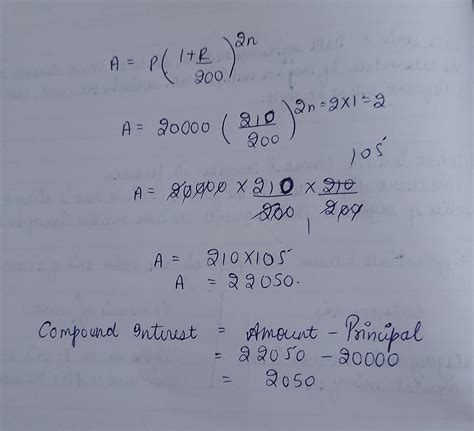 A = P(1+R/200)^2n
A = 20000 (210/200)^2n=2×1=2
105
A = 20000 × 210/200 × 210/200
1
A = 210×105
A = 22050.
Compound Interest = Amount - Principal
= 22050 - 20000
= 2050.